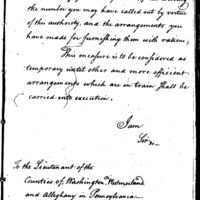 the number you may have called out by virtue
of this authority, and the arrangements you
have made for furnishing them with rations,
This measure is to be considered as
temporary until other and more efficient
arrangements which are in train shall be
carried into execution.
I am
Sir &c.
To the Lieutenant of the
Counties of Washington, Westmoreland
and Alleghany in Pennsylvania